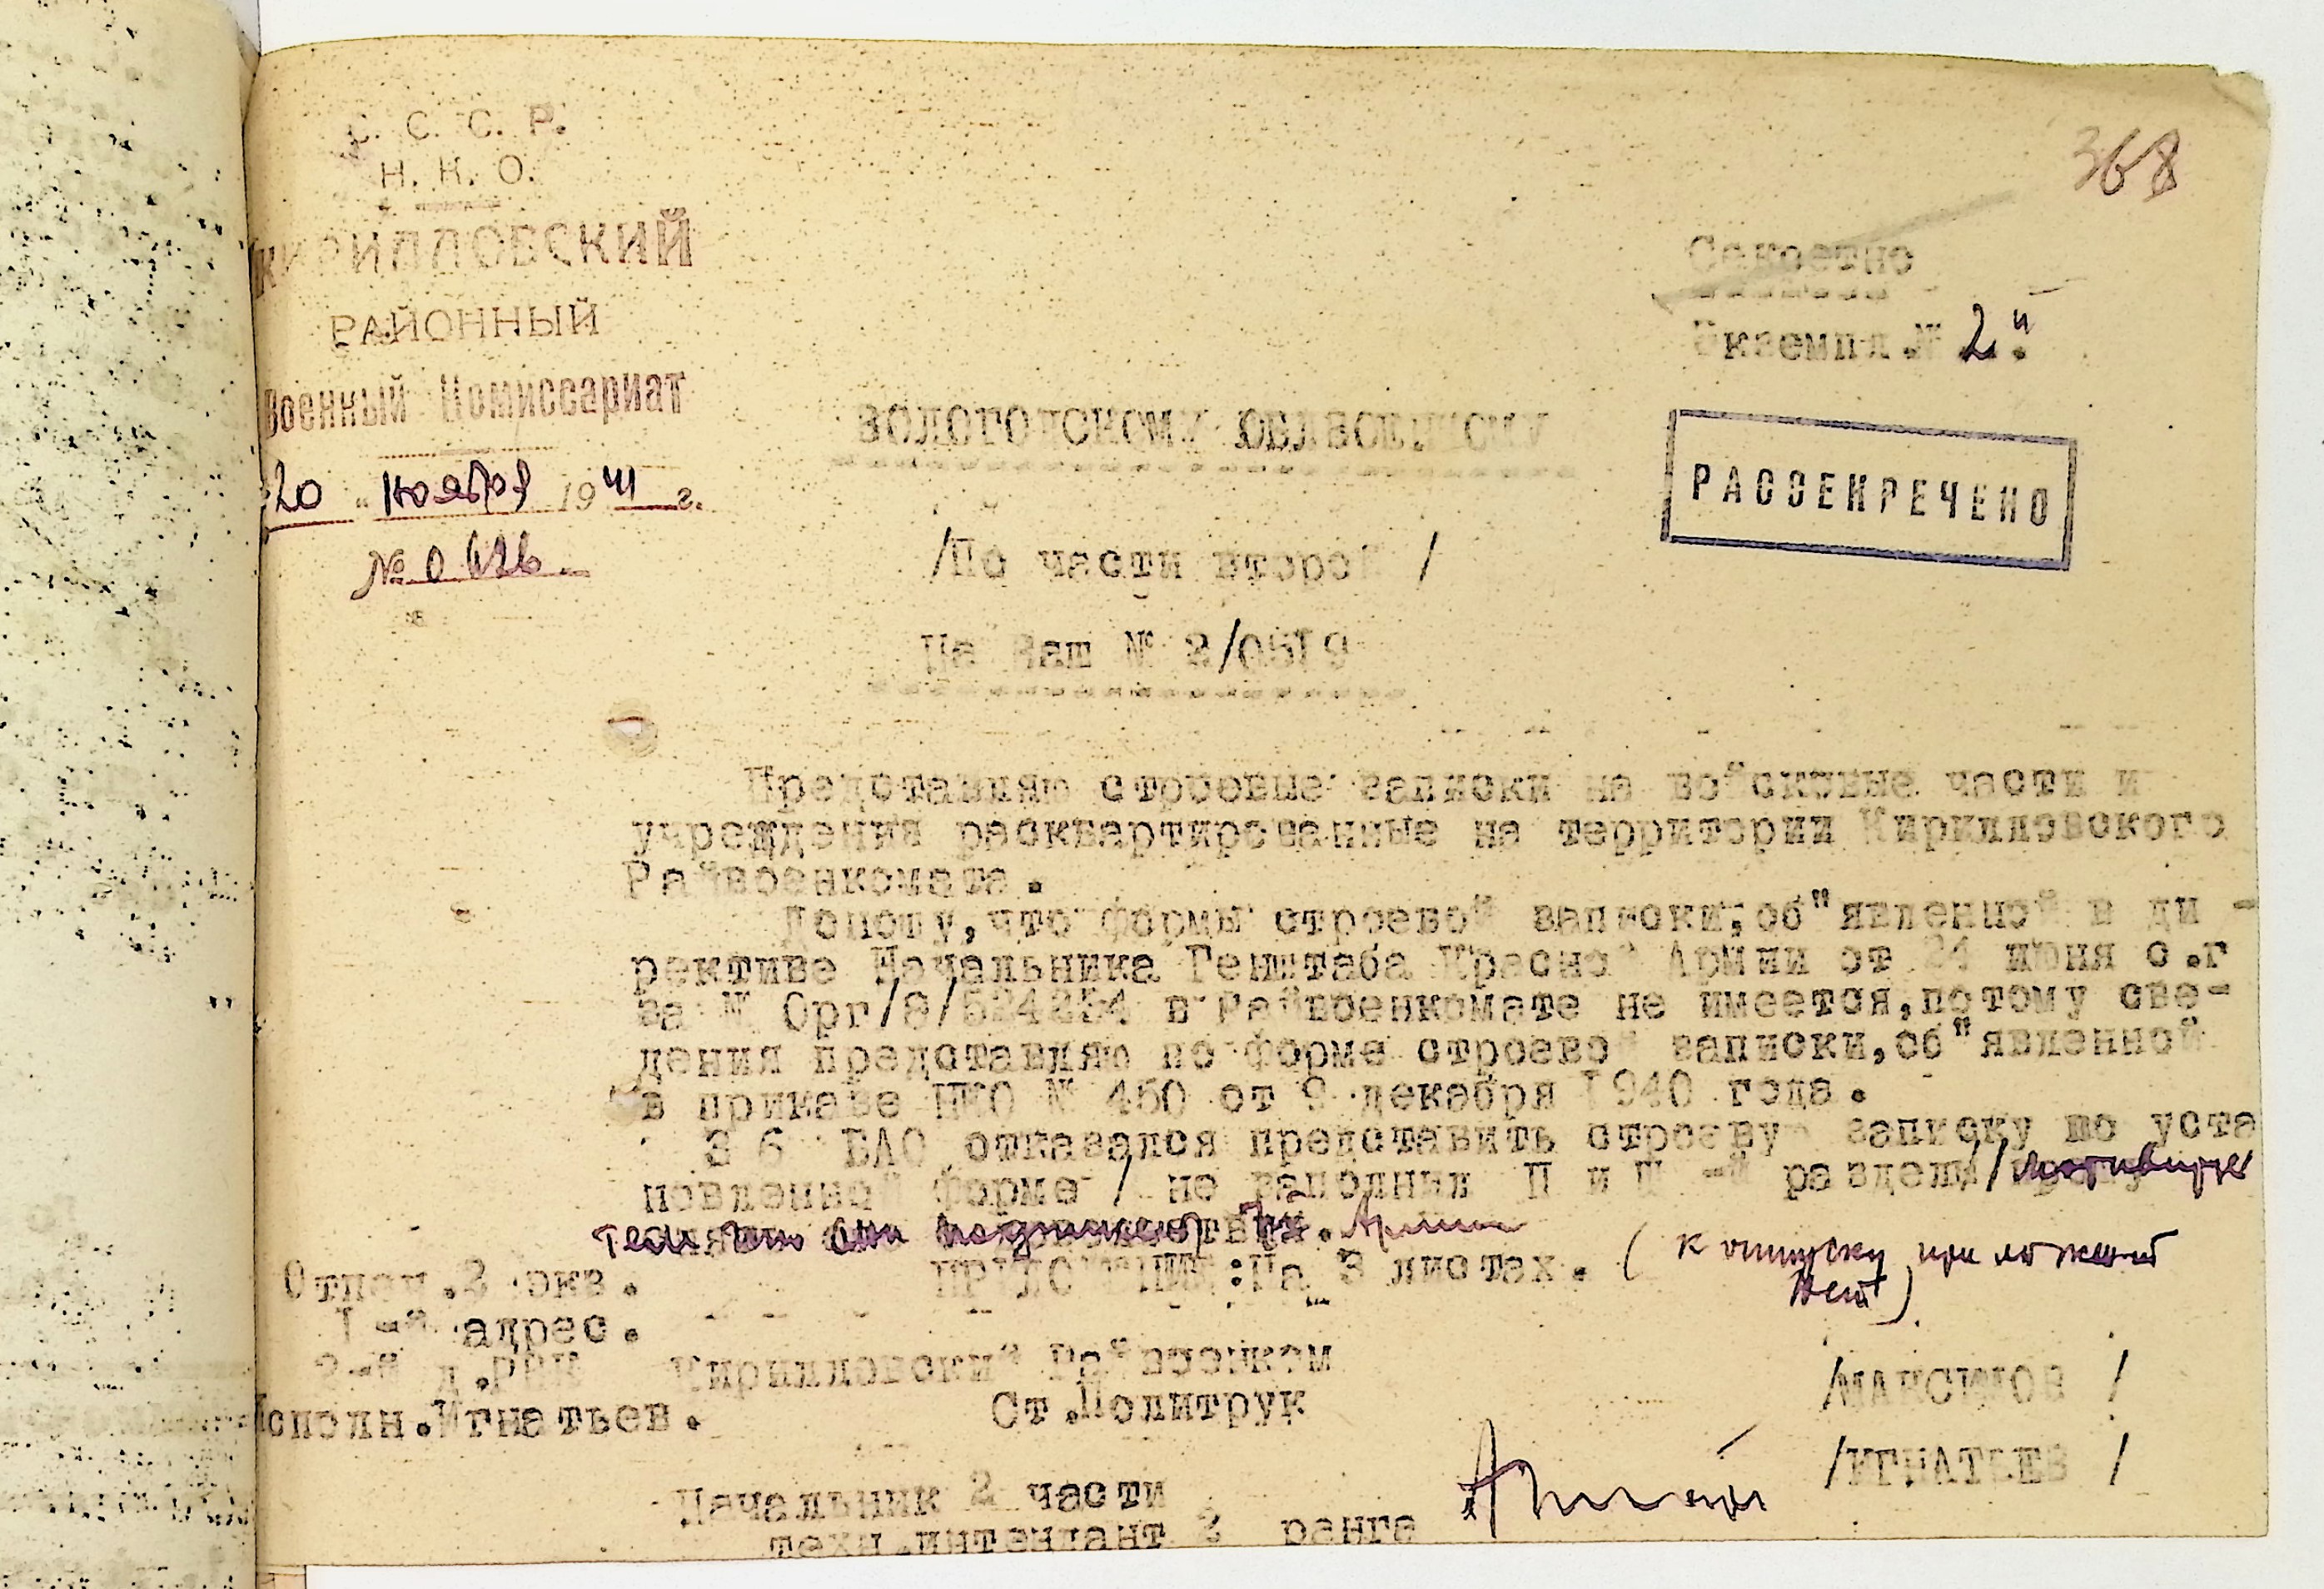 368
С. С. С. Р.
Н. К. О.
КИРИЛЛОВСКИЙ
РАЙОННЫЙ
Военный Комиссариат
20 " ноября 1941 г.
№ 0
Секретно
Экземпл.№ 2й.
РАССЕКРЕЧЕНО
ВОЛОГОТСКОМУ ОБЛВОЕНКОМУ
/По части второй /
На Ваш № 2/0519
Представляю строевые записки на войсковые части и
учреждения расквартированные на территории Кирилловского
Райвоенкомата.
Доношу,что формы строевой записки,об"явленной в ди -
рективе Начальника Генштаба Красной Армии от 24 июня с.г
за № Орг/8/524254 в Райвоенкомате не имеется,потому све-
дения представляю по форме строевой записки,об"явленной
в приказе НКО № 450 от 9 декабря 1940 года.
3 6 БАО отказался представить строевую записку по уста
новленной форме / не заполнил разделы/ мотивируя
тем что они Армии
ПРИЛОЖЕНИЕ:На 3 листах. ( к отпуску приложений
нет)
Отпеч.2 экз.
1-й адрес.
2-й д.РВК
Исполн.Игнатьев.
Кирилловский Райвоенком
Ст.Политрук
/МАКСИМОВ /
Начальник 2 части
техн.интендант 2 ранга
/ИГНАТЬЕВ /